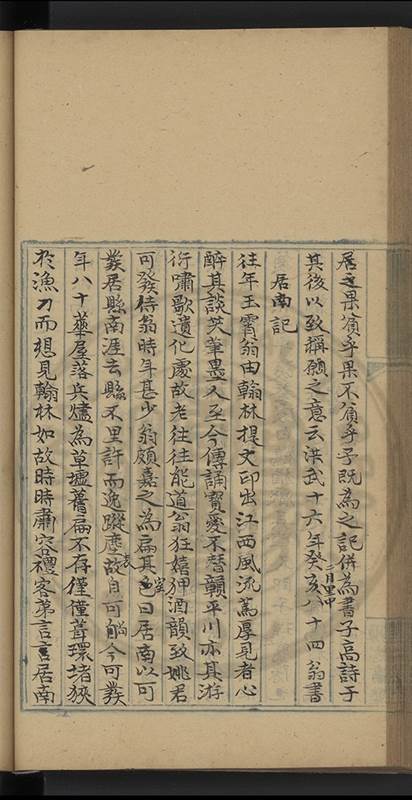 居之果濱乎果不濱乎予既為之記併為書子高詩于
其後以致稱願之意云洪武十六年癸亥八月里中八十四翁書
居南記
往年玉霄翁由翰林提文印出江西風流篤厚見者心
醉其談笑筆墨人至今傳誦寶愛不替贛平川亦其游
衍嘯歌遺化處故老往往能道翁狂嬉狎酒韻致姚君
可發侍翁時年甚少翁頗嘉之為扁其室曰居南以可
發居縣南涯去縣不里許而逸蹤塵表故自可尚今可發
年八十華屋落兵燼為草壚舊扁不存僅僅葺環堵狹
於漁刀而想見翰林如故時時肅容禮客弟言言居南